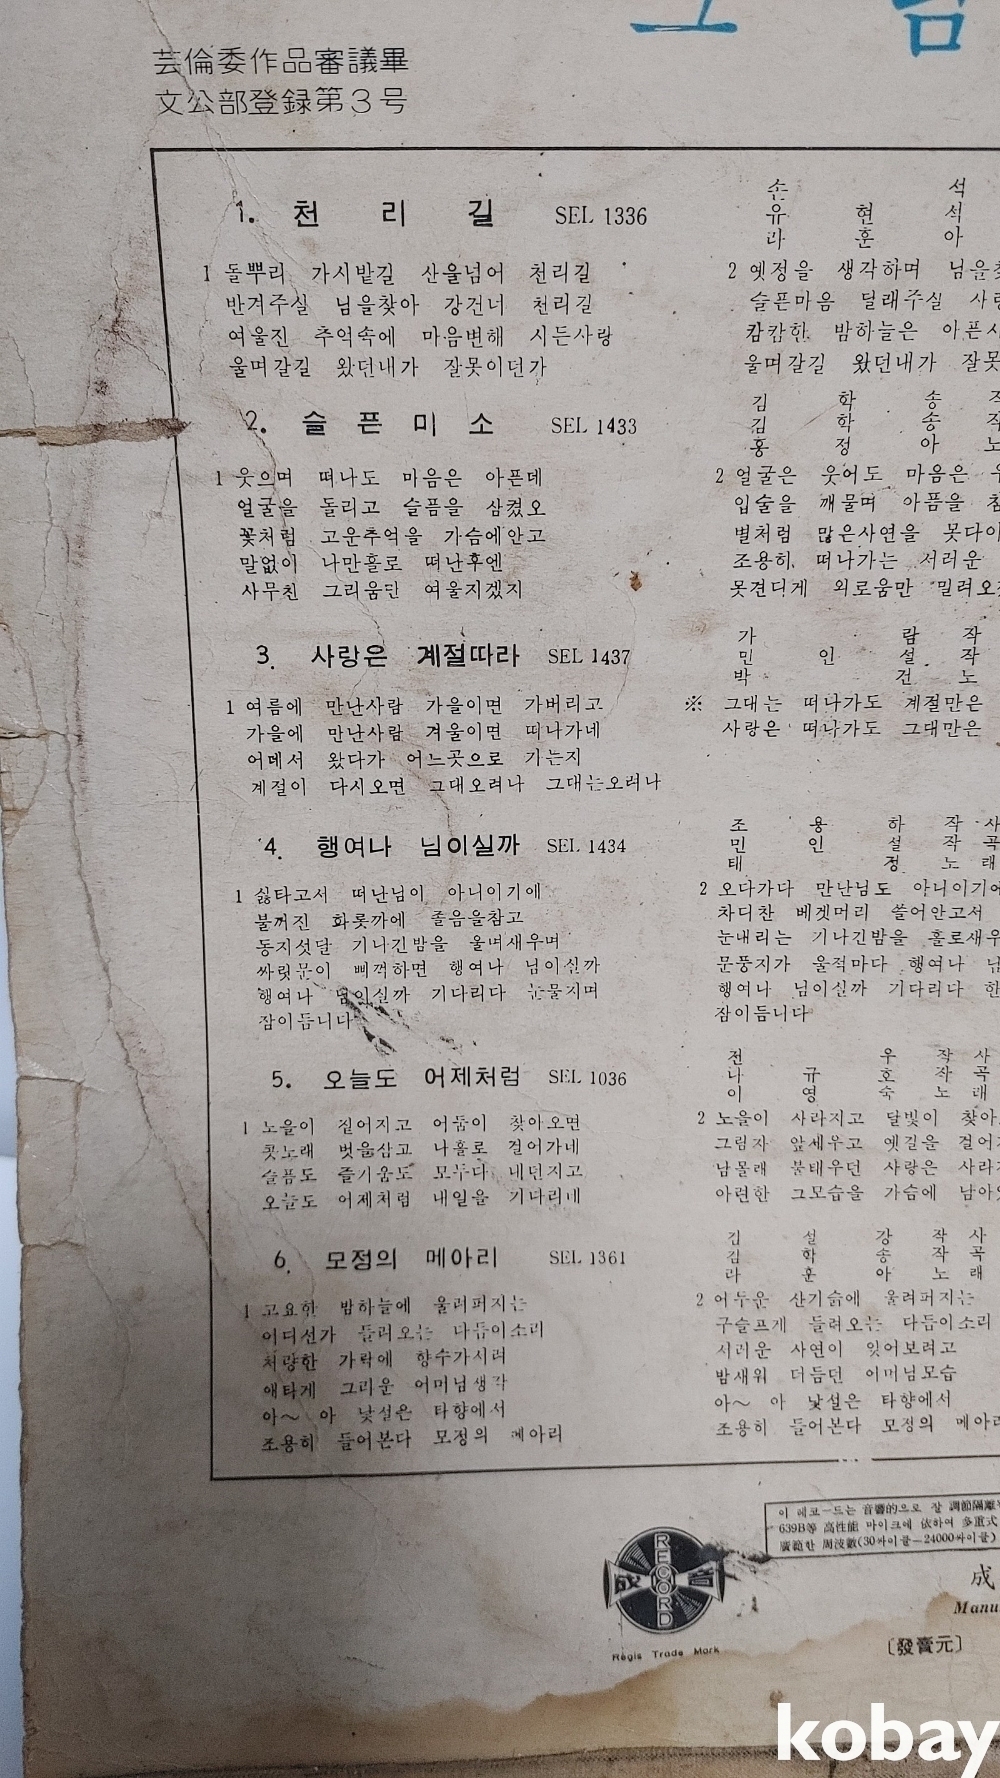 芸倫委作品審議畢
文公部登録第3号
1. 천 리 길 SEL 1336
손 석
유 현 석
라 훈 아
1 돌뿌리 가시밭길 산을넘어 천리길
반겨주실 님을찾아 강건너 천리길
여울진 추억속에 마음변해 시든사랑
울며갈길 왔던내가 잘못이던가
2 옛정을 생각하며 님을찾
슬픈마음 달래주실 사랑
캄캄한 밤하늘은 아픈사
울며갈길 왔던내가 잘못
2. 슬 픈 미 소 SEL 1433
김 학 송 작
김 학 송 작
홍 정 아 노
1 웃으며 떠나도 마음은 아픈데
얼굴을 돌리고 슬픔을 삼켰오
꽃처럼 고운추억을 가슴에안고
말없이 나만홀로 떠난후엔
사무친 그리움만 여울지겠지
2 얼굴은 웃어도 마음은
입술을 깨물며 아픔을 참
별처럼 많은사연을 못다이
조용히 떠나가는 서러운
못견디게 외로움만 밀려오
3. 사랑은 계절따라 SEL 1437
가 람 작
민 인 설 작
박 건 노
1 여름에 만난사람 가을이면 가버리고
가을에 만난사람 겨울이면 떠나가네
어데서 왔다가 어느곳으로 가는지
계절이 다시오면 그대오려나 그대는오려나
※ 그대는 떠나가도 계절만은
사랑은 떠나가도 그대만은
4. 행여나 님이실까 SEL 1434
조 용 하 작 사
민 인 설 작 곡
태 정 노 래
1 싫타고서 떠난님이 아니이기에
불꺼진 화롯까에 졸음을참고
동지섯달 기나긴밤을 울며새우며
싸릿문이 삐꺽하면 행여나 님이실까
행여나 님이실까 기다리다 눈물지며
잠이듭니다
2 오다가다 만난님도 아니이기에
차디찬 베겟머리 쓸어안고서
눈내리는 기나긴밤을 홀로새우
문풍지가 울적마다 행여나 님
행여나 님이실까 기다리다 한
잠이듭니다
5. 오늘도 어제처럼 SEL 1036
전 우 작 사
나 규 호 작 곡
이 영 숙 노 래
1 노을이 짙어지고 어둠이 찾아오면
콧노래 벗을삼고 나홀로 걸어가네
슬픔도 즐거움도 모두다 내던지고
오늘도 어제처럼 내일을 기다리네
2 노을이 사라지고 달빛이 찾아
그림자 앞세우고 옛길을 걸어
남몰래 불태우던 사랑은 사라
아련한 그모습을 가슴에 남아
6. 모정의 메아리 SEL 1361
김 설 강 작 사
김 학 송 작 곡
라 훈 아 노 래
1 고요한 밤하늘에 울려퍼지는
어디선가 들려오는 다듬이소리
처량한 가락에 향수가시려
애타게 그리운 어머님생각
아~ 아 낯설은 타향에서
조용히 들어본다 모정의 메아리
2 어두운 산기슭에 울려퍼지는
구슬프게 들려오는 다듬이소리
서러운 사연이 잊어보려고
밤새워 더듬던 어머님모습
아~ 아 낯설은 타향에서
조용히 들어본다 모정의 메아리
이 레코-드는 音響的으로 잘 調節隔離
639B等 高性能 마이크에 依하여 多重式
廣範한 周波數(30싸이클-24000싸이클)
成音
RECORD
Regis Trade Mark
成
Manu
〔發賣元〕
kobay